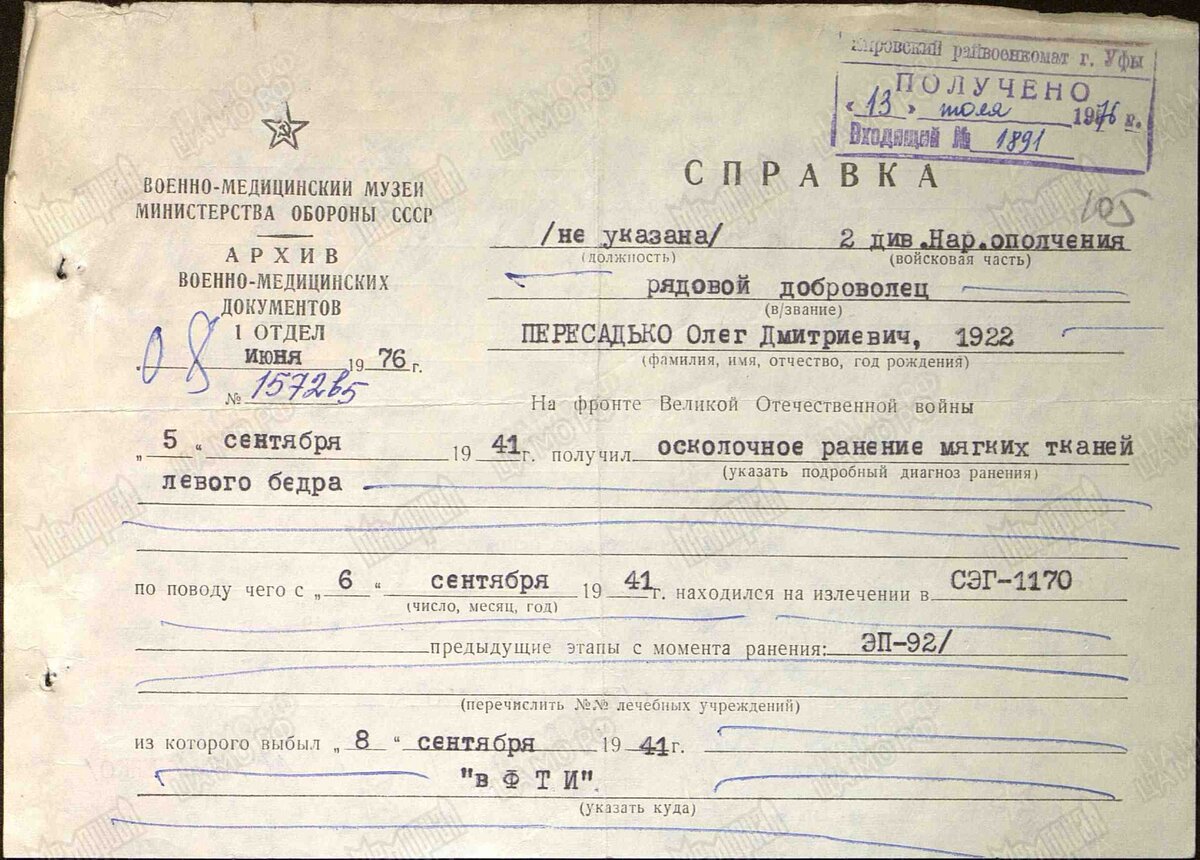 кировский райвоенкомат г. Уфы
ПОЛУЧЕНО
« 13 » июля 1976 г.
Входящий № 1891
СПРАВКА
105
ВОЕННО-МЕДИЦИНСКИЙ МУЗЕЙ
МИНИСТЕРСТВА ОБОРОНЫ СССР
АРХИВ
ВОЕННО-МЕДИЦИНСКИХ
ДОКУМЕНТОВ
1 ОТДЕЛ
08 июня 1976 г.
№
/не указана/ 2 див.Нар.ополчения
(должность) (войсковая часть)
рядовой доброволец
(в/звание)
ПЕРЕСАДЬКО Олег Дмитриевич, 1922
(фамилия, имя, отчество, год рождения)
На фронте Великой Отечественной войны
„ 5 “ сентября 19 41г. получил осколочное ранение мягких тканей
(указать подробный диагноз ранения)
левого бедра
по поводу чего с „ 6 “ сентября 19 41г. находился на излечении в СЭГ-1170
(число, месяц, год)
предыдущие этапы с момента ранения: ЭП-92/
(перечислить №№ лечебных учреждений)
из которого выбыл „ 8 “ сентября 19 41г.
"в Ф Т И".
(указать куда)